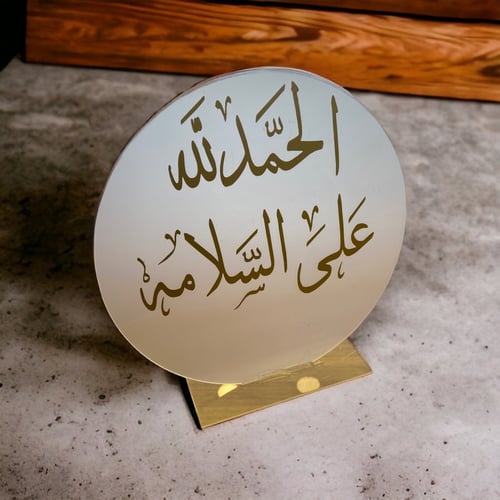 الحمّد لله
علَى السَّلامه